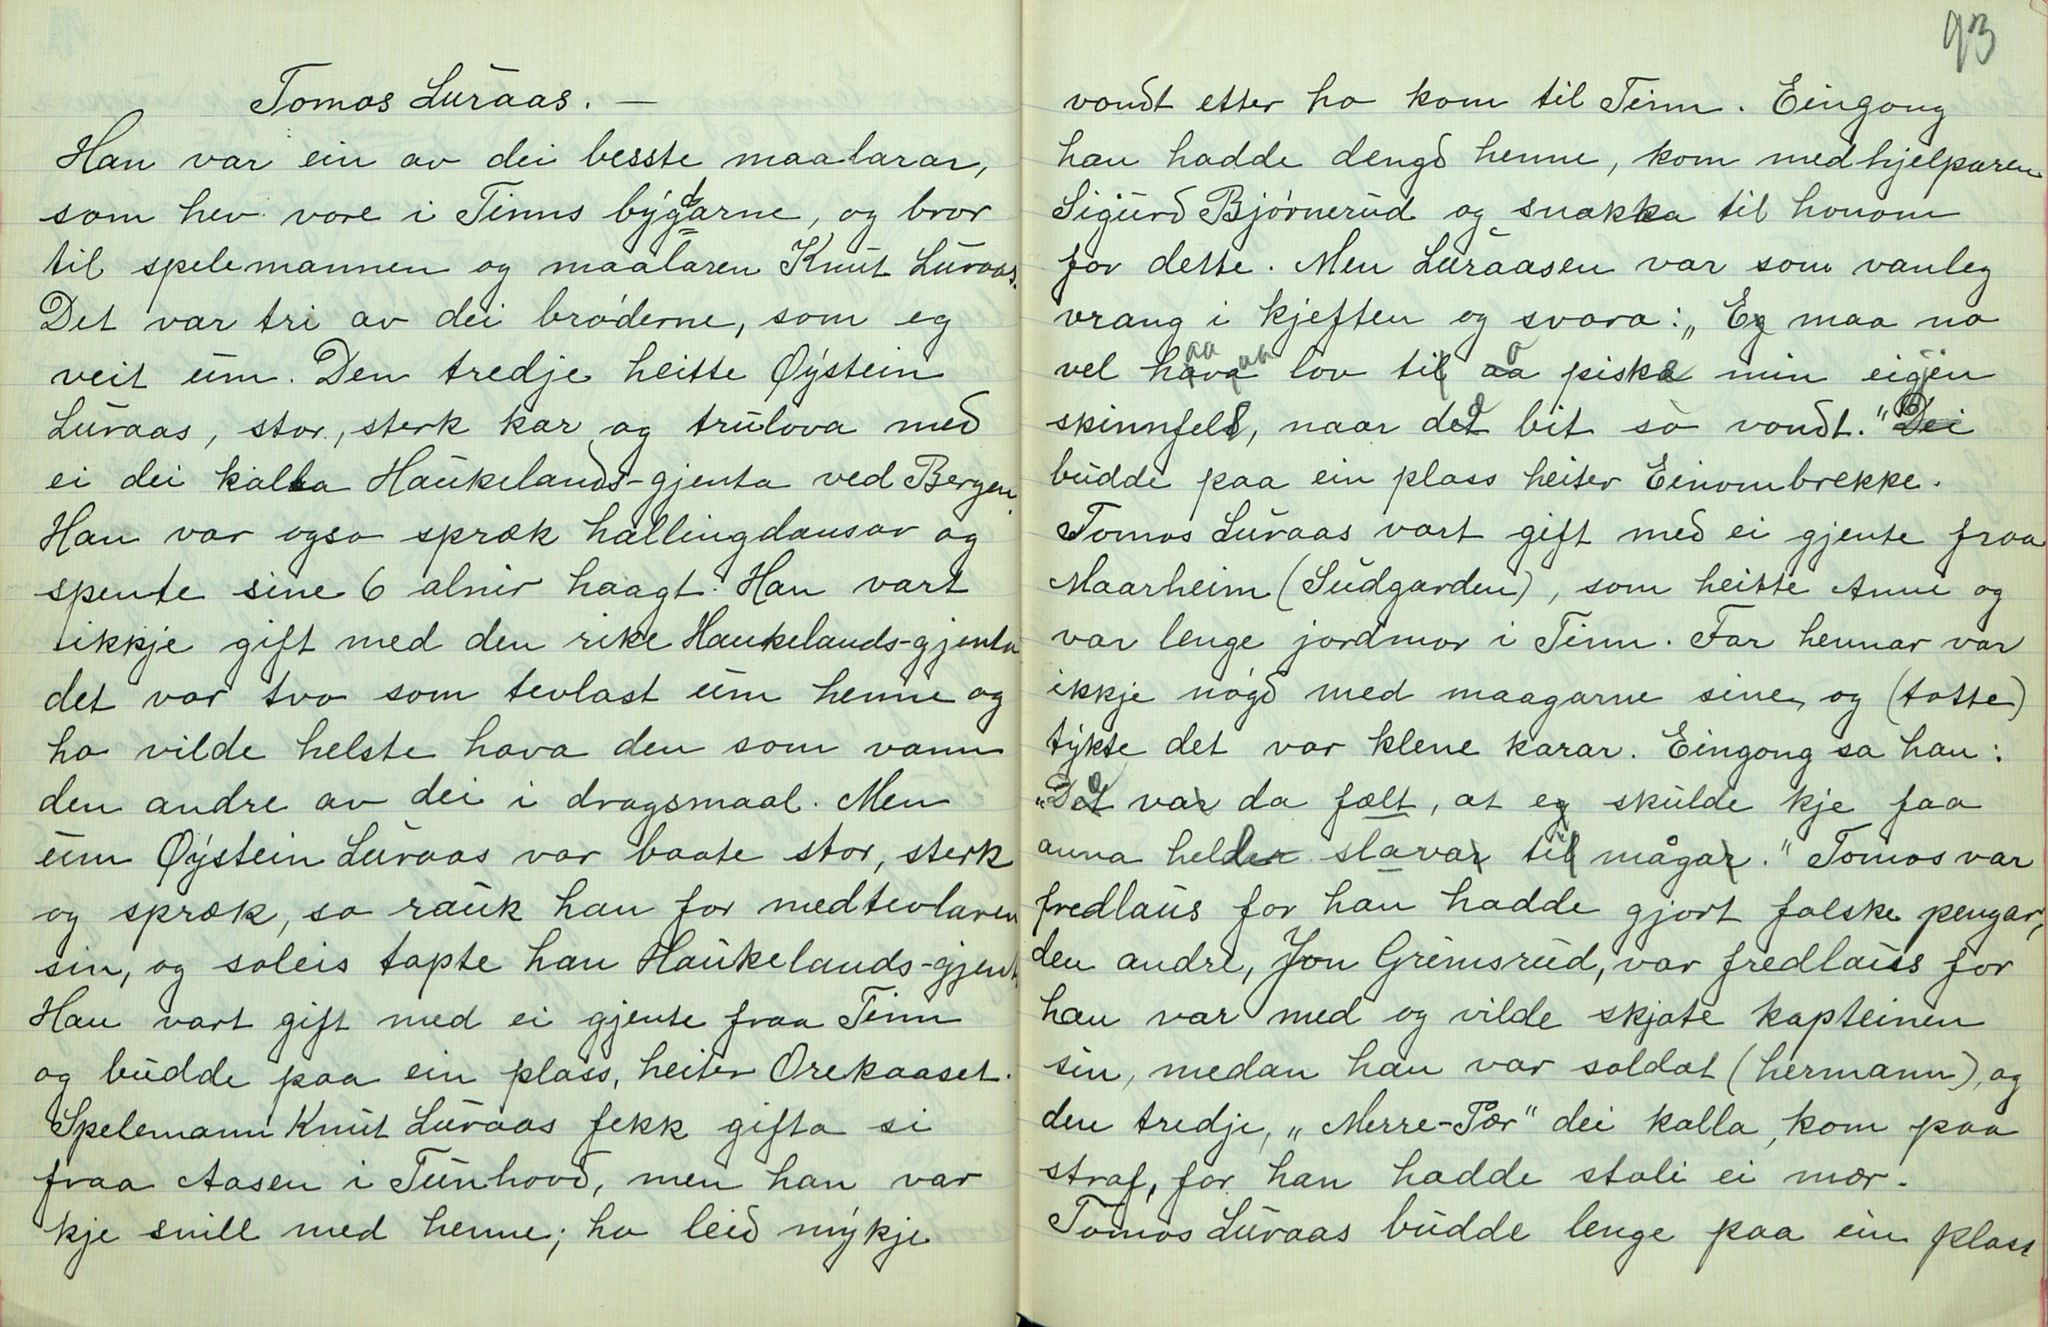 Tomos Luraas. —
Han var ein av dei besste maalarar,
som hev vore i Tinns bygdarne, og bror
til spelemannen og maalaren Knut Luraas.
Det var tri av dei brøderne, som eg
veit um. Den tredje heitte Øystein
Luraas, stor, sterk kar og trulova med
ei dei kalla Haukelands-gjenta ved Bergen.
Han var ogso spræk hallingdansar og
spente sine 6 alnir haagt. Han vart
ikkje gift med den rike Haukelands-gjenta
det var tvo som tevlast um henne og
ho vilde helste hava den som vann
den andre av dei i dragsmaal. Men
um Øystein Luraas var baate stor, sterk
og spræk, so rauk han for medtevlaren
sin, og soleis tapte han Haukelands-gjent.
Han vart gift med ei gjente fraa Tinn
og budde paa ein plass, heiter Orekaaset.
Spelemann Knut Luraas fekk gifta si
fraa Aasen i Tunhovd, men han var
kje snill med henne; ho leid mykje
93
vondt etter ho kom til Tinn. Eingong
han hadde dengd henne, kom medhjelparen
Sigurd Bjørnerud og snakka til honom
for dette. Men Luraasen var som vanleg
vrang i kjeften og svara: „Eg maa no
vel hava lov til aa piska min eigjen
skinnfeld, naar det bit so vondt." Dei
budde paa ein plass heiter Einombrekke.
Tomos Luraas vart gift med ei gjente fraa
Maarheim (Sudgarden), som heitte Anne og
var lenge jordmor i Tinn. Far hennar var
ikkje nøgd med maagarne sine, og (totte)
tykte det var klene karar. Eingong sa han:
„Det var da fælt, at eg skulde kje faa
anna helder slavar til mågar." Tomos var
fredlaus for han hadde gjort falske pengar,
den andre, Jon Grimsrud, var fredlaus for
han var med og vilde skjote kapteinen
sin, medan han var soldat (hermann), og
den tredje, „Merre-Pær" dei kalla, kom paa
straf, for han hadde stoli ei mær.
Tomos Luraas budde lenge paa ein plass